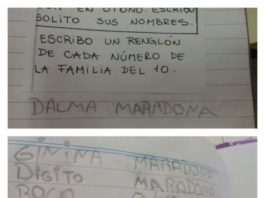 EN OTOÑO. ESCRIBO
SOLITO SUS NOMBRES.
ESCRIBO UN RENGLÓN
DE CADA NÚMERO DE
LA FAMILIA DEL 10.
DALMA MARADONA
GININA MARADONA
DIGITO MARADONA